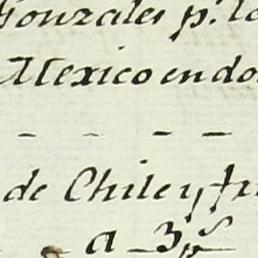 Gonzales p.r la
Mexico en do
- - - -
de Chile y fr
a 3 p.s